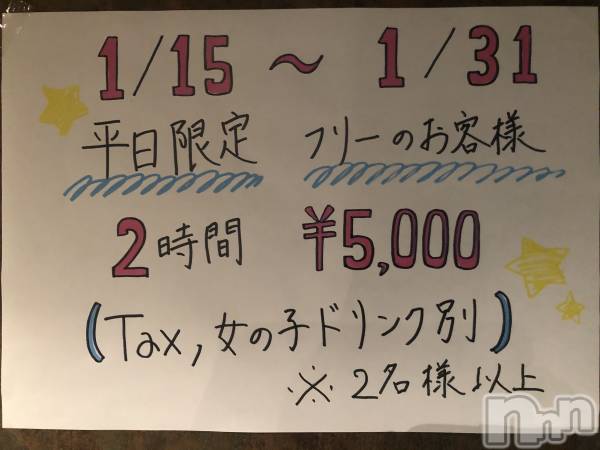 1/15 ～ 1/31
平日限定 フリーのお客様
2時間 ¥5,000
(Tax,女の子ドリンク別)
※2名様以上